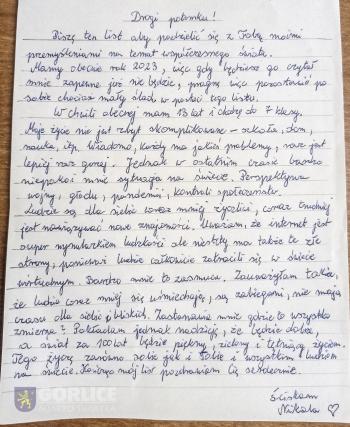 Drogi potomku!
Piszę ten list aby podzielić się z Tobą moimi
przemyśleniami na temat współczesnego świata.
Mamy obecnie rok 2023, więc gdy będziesz go czytał
mnie zapewne już nie będzie, pragnę więc pozostawić po
sobie chociaż mały ślad w postaci tego listu.
W chwili obecnej mam 13 lat i chodzę do 7 klasy.
Moje życie nie jest zbyt skomplikowane - szkoła, dom,
nauka, itp. Wiadomo, każdy ma jakieś problemy, raz jest
lepiej raz gorzej. Jednak w ostatnim czasie bardzo
niepokoi mnie sytuacja na świecie. Perspektywa
wojny, głodu, pandemii, kontroli społeczeństw.
Ludzie są dla siebie coraz mniej życzliwi, coraz trudniej
jest nawiązywać nowe znajomości. Uważam, że internet jest
super wynalazkiem ludzkości ale niestety ma także te złe
strony, ponieważ ludzie całkowicie zatracili się w świecie
wirtualnym. Bardzo mnie to zasmuca. Zauważyłam także,
że ludzie coraz mniej się uśmiechają, są zabiegani, nie mają
czasu dla siebie i bliskich. Zastanawia mnie gdzie to wszystko
zmierza? Pokładam jednak nadzieję, że będzie dobrze,
a świat za 100 lat będzie piękny, zielony i tętniący życiem.
Tego życzę zarówno sobie jak i Tobie i wszystkim ludziom
na świecie. Kończąc mój list pozdrawiam Cię serdecznie.
Ściskam
Nikola
GORLICE